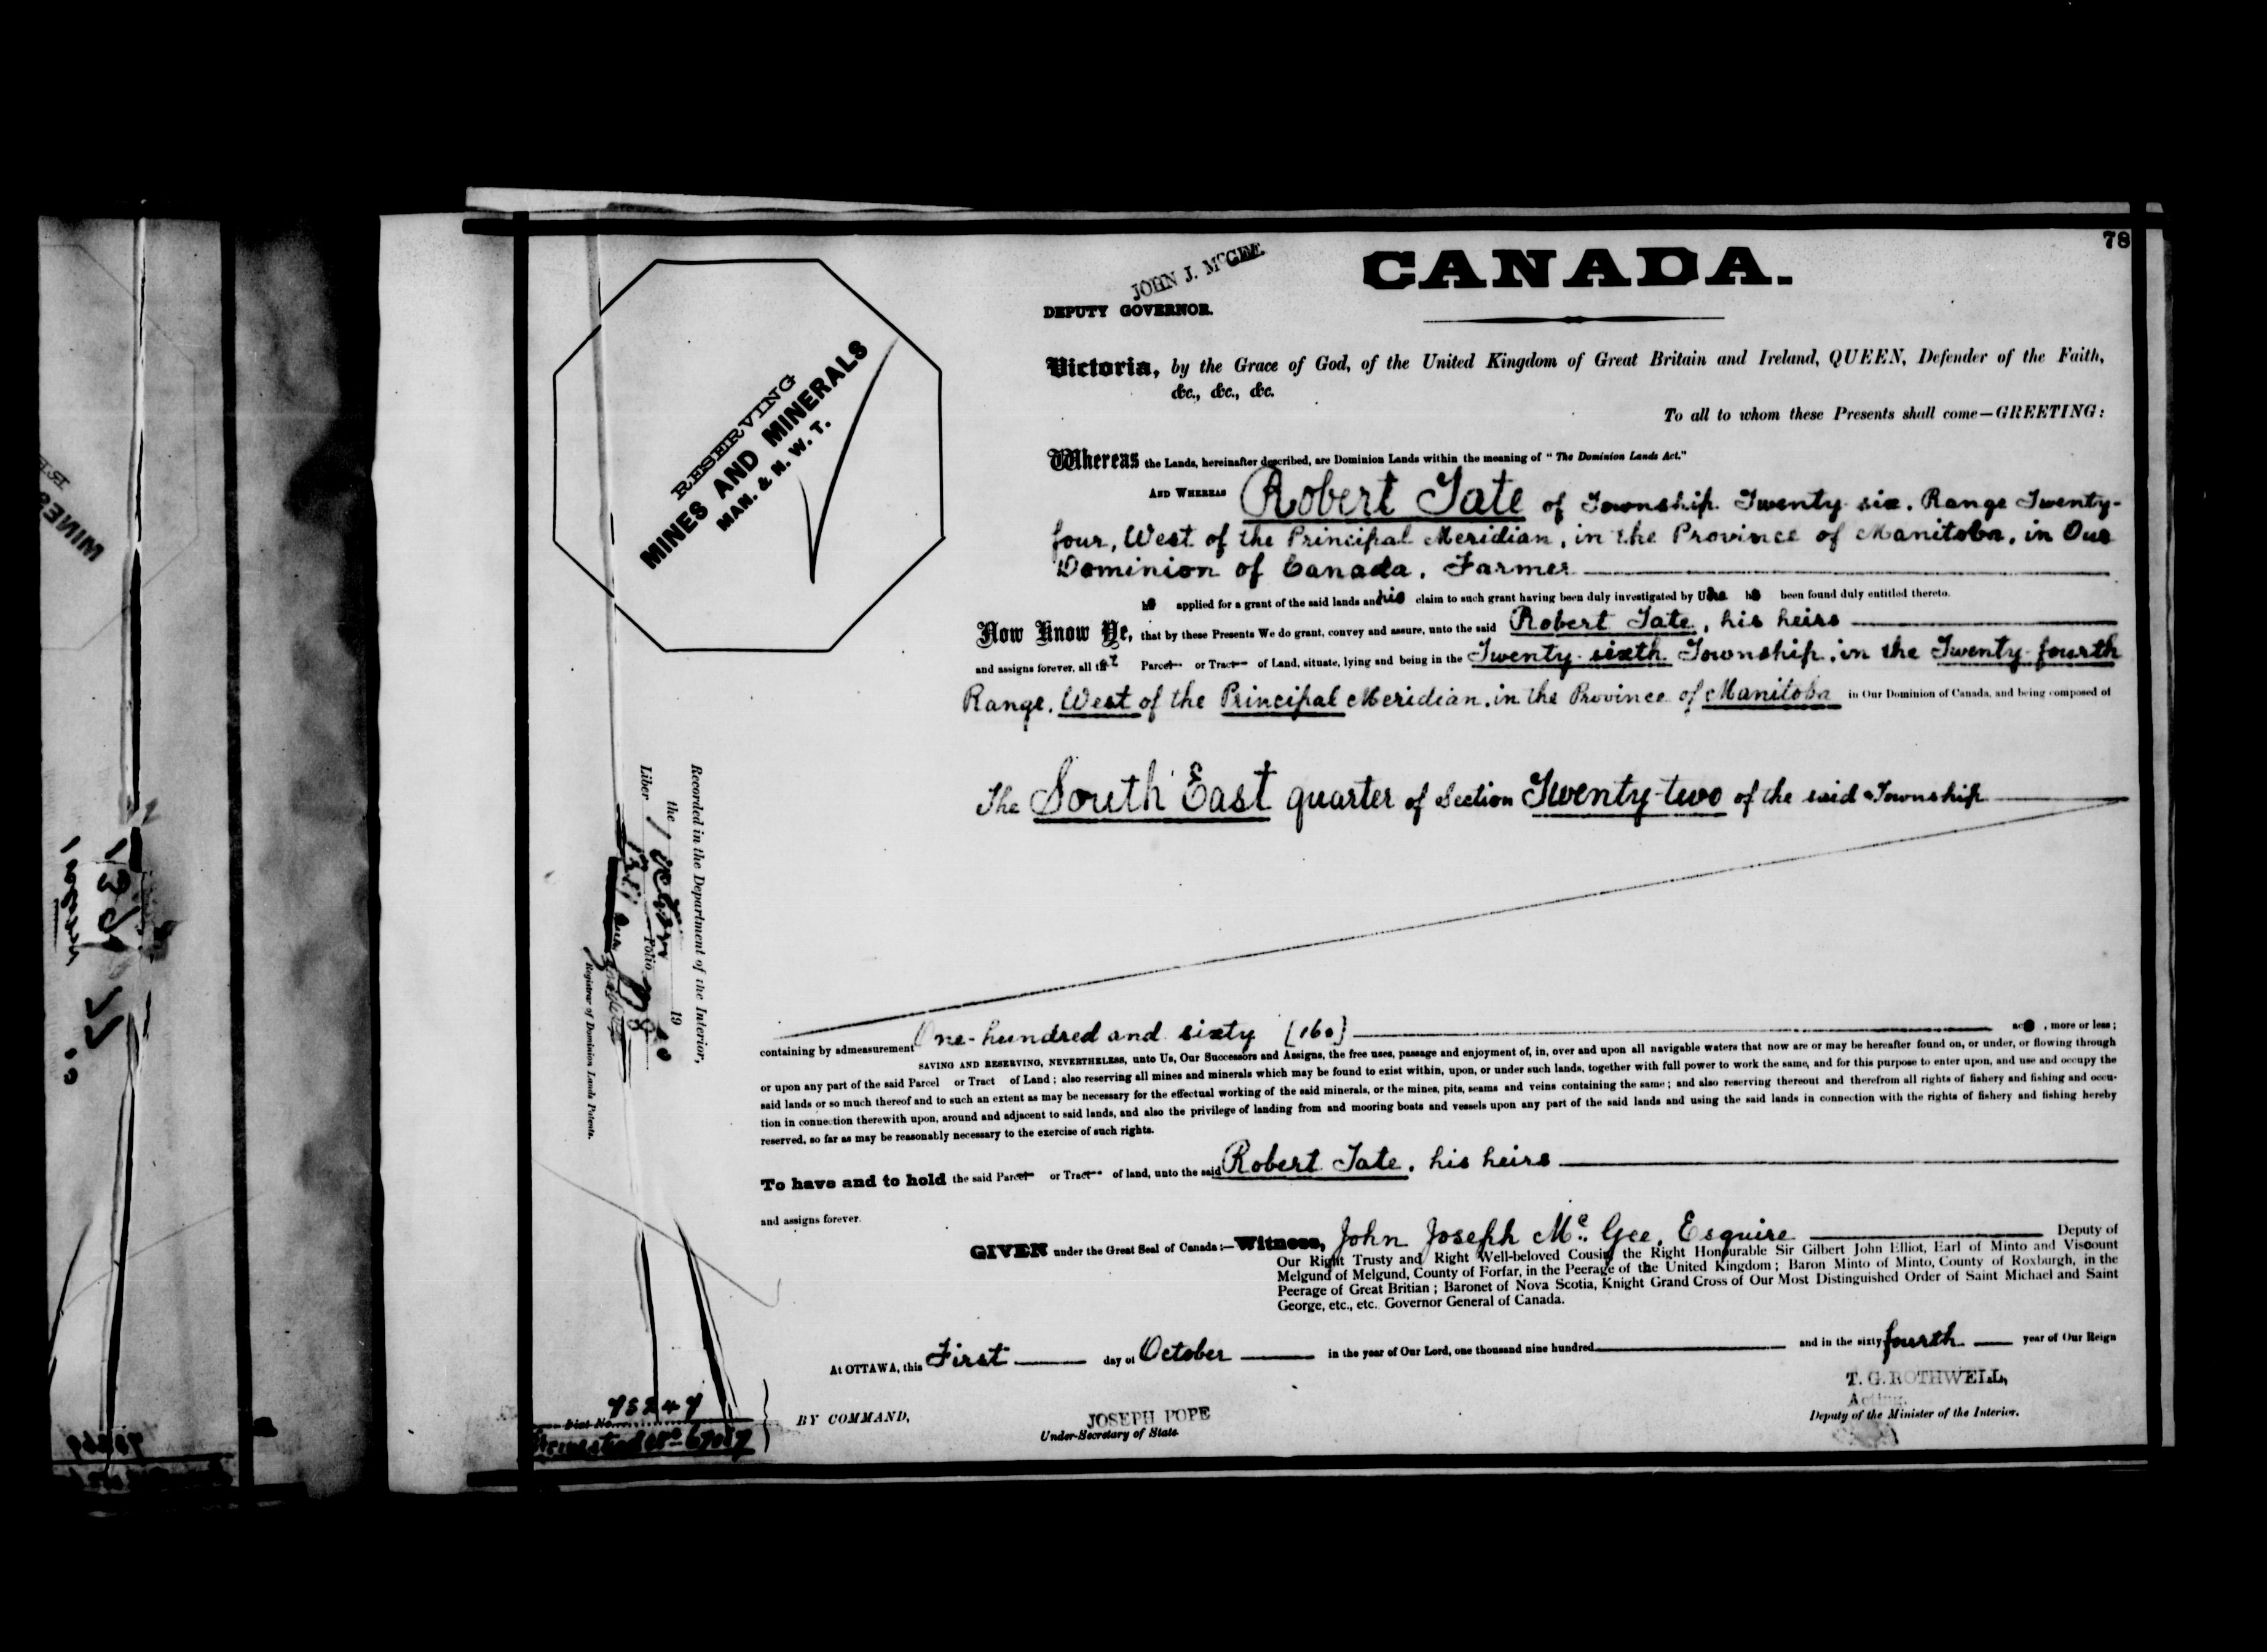 78
CANADA.
JOHN J. McGEE.
DEPUTY GOVERNOR.
RESERVING
MINES AND MINERALS
MAN. & N. W. T.
Victoria, by the Grace of God, of the United Kingdom of Great Britain and Ireland, QUEEN, Defender of the Faith,
&c., &c., &c.
To all to whom these Presents shall come—GREETING:
Whereas the Lands, hereinafter described, are Dominion Lands within the meaning of "The Dominion Lands Act."
AND WHEREAS Robert Tate of Township Twenty-six, Range Twenty-
four, West of the Principal Meridian, in the Province of Manitoba, in Our
Dominion of Canada, Farmer
applied for a grant of the said lands and his claim to such grant having been duly investigated by Us he been found duly entitled thereto.
Now Know Ye, that by these Presents We do grant, convey and assure, unto the said Robert Tate, his heirs
and assigns forever, all that Parcel or Tract of Land, situate, lying and being in the Twenty-sixth Township, in the Twenty-fourth
Range, West of the Principal Meridian, in the Province of Manitoba in Our Dominion of Canada, and being composed of
The South East quarter of Section Twenty-two of the said Township
containing by admeasurement One-hundred and sixty [160] , more or less;
SAVING AND RESERVING, NEVERTHELESS, unto Us, Our Successors and Assigns, the free uses, passage and enjoyment of, in, over and upon all navigable waters that now are or may be hereafter found on, or under, or flowing through
or upon any part of the said Parcel or Tract of Land; also reserving all mines and minerals which may be found to exist within, upon, or under such lands, together with full power to work the same, and for this purpose to enter upon, and use and occupy the
said lands or so much thereof and to such an extent as may be necessary for the effectual working of the said minerals, or the mines, pits, seams and veins containing the same; and also reserving thereout and therefrom all rights of fishery and fishing and occu-
tion in connection therewith upon, around and adjacent to said lands, and also the privilege of landing from and mooring boats and vessels upon any part of the said lands and using the said lands in connection with the rights of fishery and fishing hereby
reserved, so far as may be reasonably necessary to the exercise of such rights.
To have and to hold the said Parcel or Tract of land, unto the said Robert Tate, his heirs
and assigns forever.
GIVEN under the Great Seal of Canada:—Witness, John Joseph McGee, Esquire Deputy of
Our Right Trusty and Right Well-beloved Cousin the Right Honourable Sir Gilbert John Elliot, Earl of Minto and Viscount
Melgund of Melgund, County of Forfar, in the Peerage of the United Kingdom; Baron Minto of Minto, County of Roxburgh, in the
Peerage of Great Britian; Baronet of Nova Scotia, Knight Grand Cross of Our Most Distinguished Order of Saint Michael and Saint
George, etc., etc. Governor General of Canada.
At OTTAWA, this First day of October in the year of Our Lord, one thousand nine hundred and in the sixty fourth year of Our Reign
BY COMMAND,
JOSEPH POPE
Under-Secretary of State.
T. G. ROTHWELL,
Acting
Deputy of the Minister of the Interior.
Recorded in the Department of the Interior,
the 19
Liber Folio 78
Registrar of Dominion Lands Patents.
Dist No.
Homestead No.